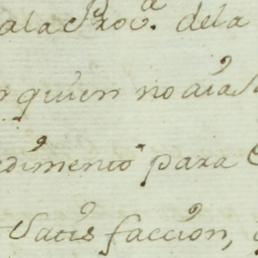 ala Prov.ª dela
quien no aia
dimento para
Satisfaccion,